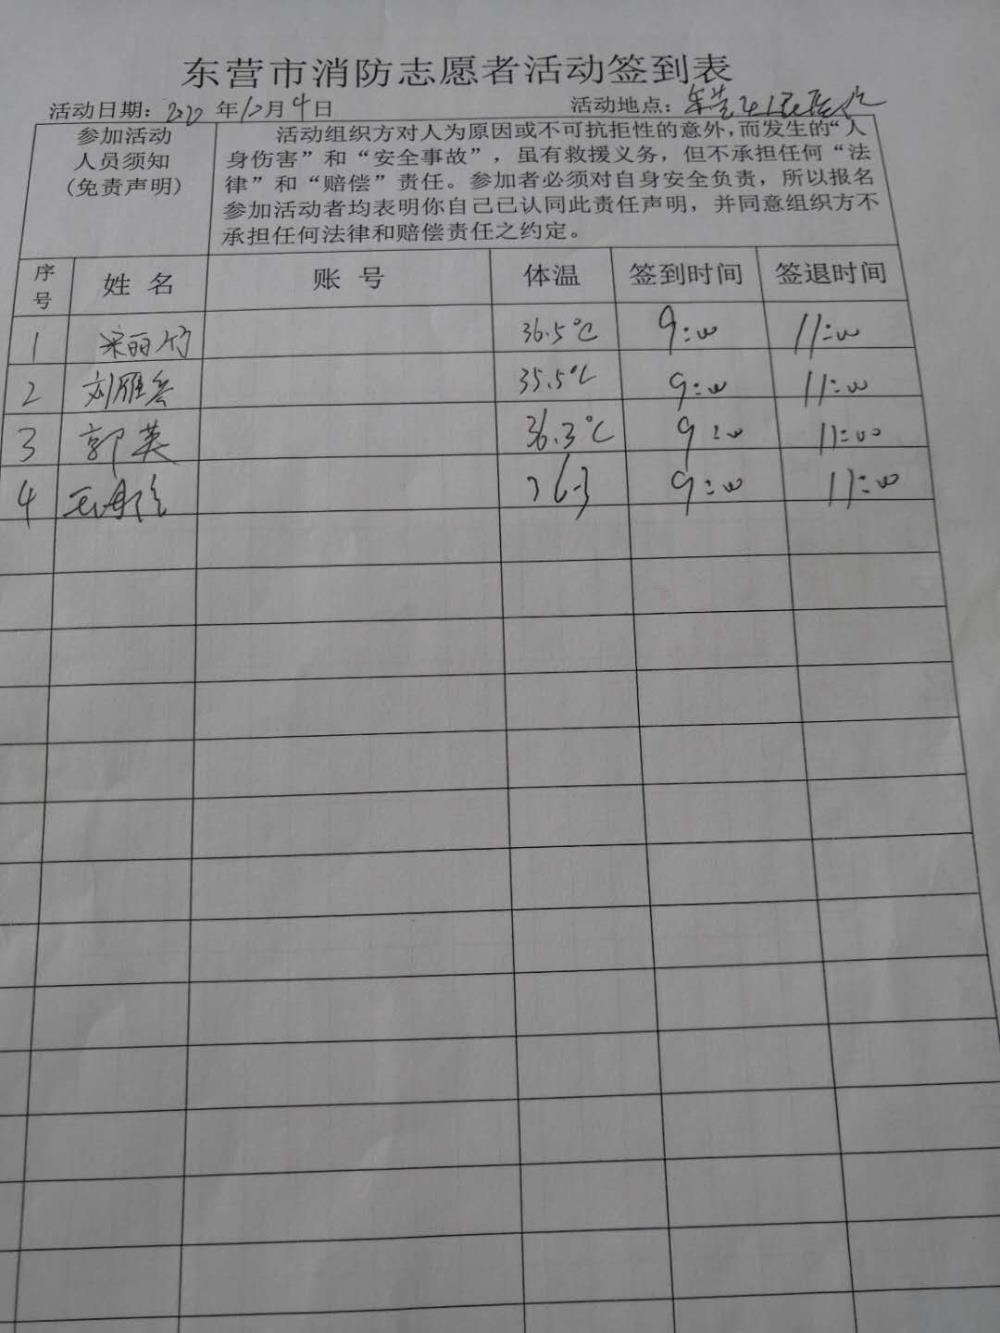 东营市消防志愿者活动签到表
活动日期: 年12月4日 活动地点: 东营市人民医院
参加活动
人员须知
(免责声明)
活动组织方对人为原因或不可抗拒性的意外,而发生的“人
身伤害”和“安全事故”,虽有救援义务,但不承担任何“法
律”和“赔偿”责任。参加者必须对自身安全负责,所以报名
参加活动者均表明你自己已认同此责任声明,并同意组织方不
承担任何法律和赔偿责任之约定。
序号 姓名 账号 体温 签到时间 签退时间
1 36.5℃ 9:00 11:00
2 刘雁 35.5℃ 9:00 11:00
3 郭英 36.3℃ 9:00 11:00
4 36.3 9:00 11:00